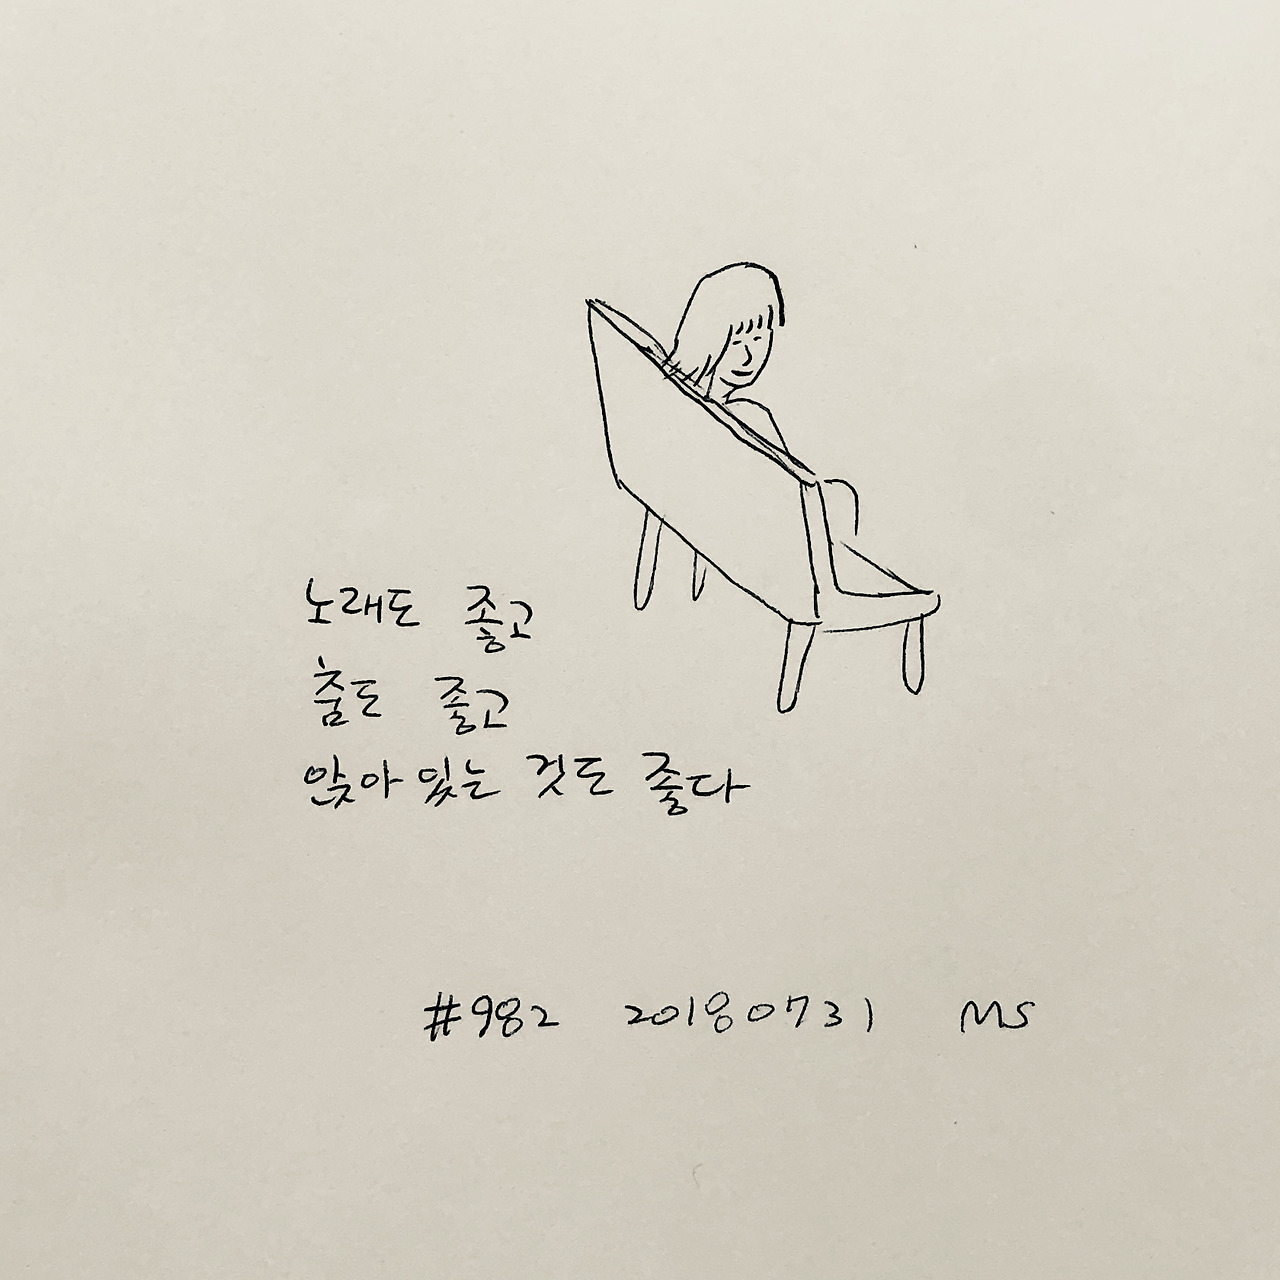 노래도 좋고
춤도 좋고
앉아 있는 것도 좋다
#982 20180731 MS